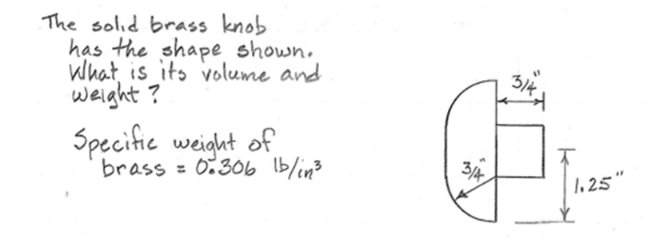 The solid brass knob
has the shape shown.
What is its volume and
weight?
Specific weight of
brass = 0.306 lb/in³
3/4"
3/4"
1.25"